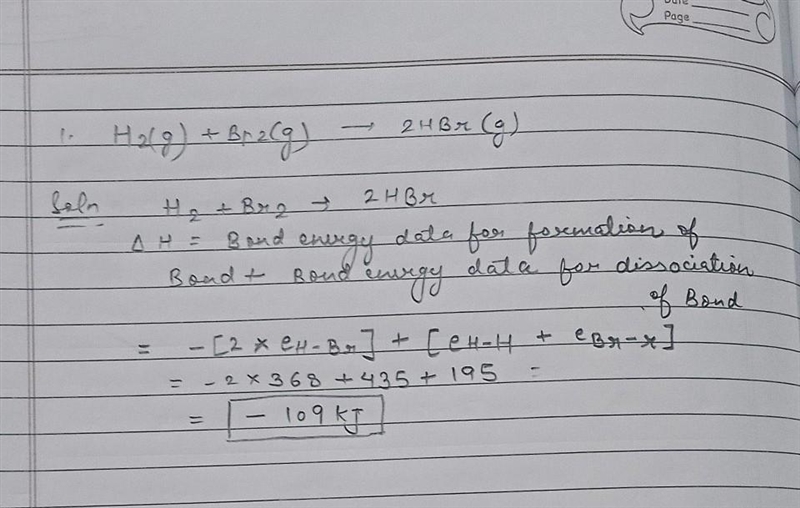 Date
Page
1. H2(g) + Br2(g) → 2HBr(g)
Soln H2 + Br2 → 2HBr
Δ H = Bond energy data for formation of
Bond + Bond energy data for dissociation
of Bond
= -[2 × eH-Br] + [eH-H + eBr-r]
= -2 × 368 + 435 + 195 =
= - 109 KJ